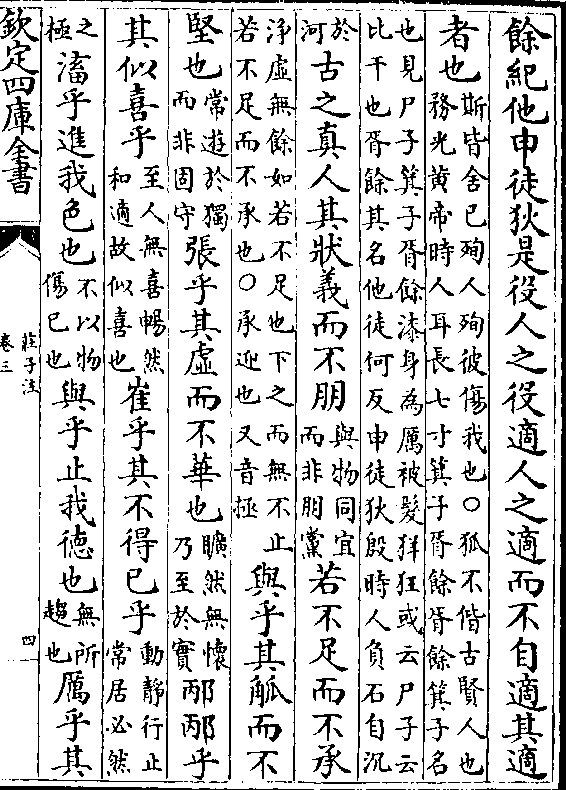 餘紀他申徒狄是役人之役適人之適而不自適其適
者也斯皆舍已殉人殉彼傷我也〇狐不偕古賢人也務光黄帝時人耳長七寸箕子胥餘胥餘箕子名
也見尸子箕子胥餘漆身為厲被髮佯狂或云尸子云比干也胥餘其名他徒何反申徒狄殷時人負石自沉
於河古之真人其狀義而不朋與物同宜而非朋黨若不足而不承
浄虚無餘如若不足也下之而無不止若不足而不承也〇承迎也又音拯與乎其觚而不
堅也常遊於獨而非固守張乎其虚而不華也曠然無懷乃至於實邴邴乎
其似喜乎至人無喜暢然和適故似喜也崔乎其不得已乎動靜行止常居必然
之極滀乎進我色也不以物傷已也與乎止我徳也無所趨也厲乎其
欽定四庫全書
莊子注
卷三
四